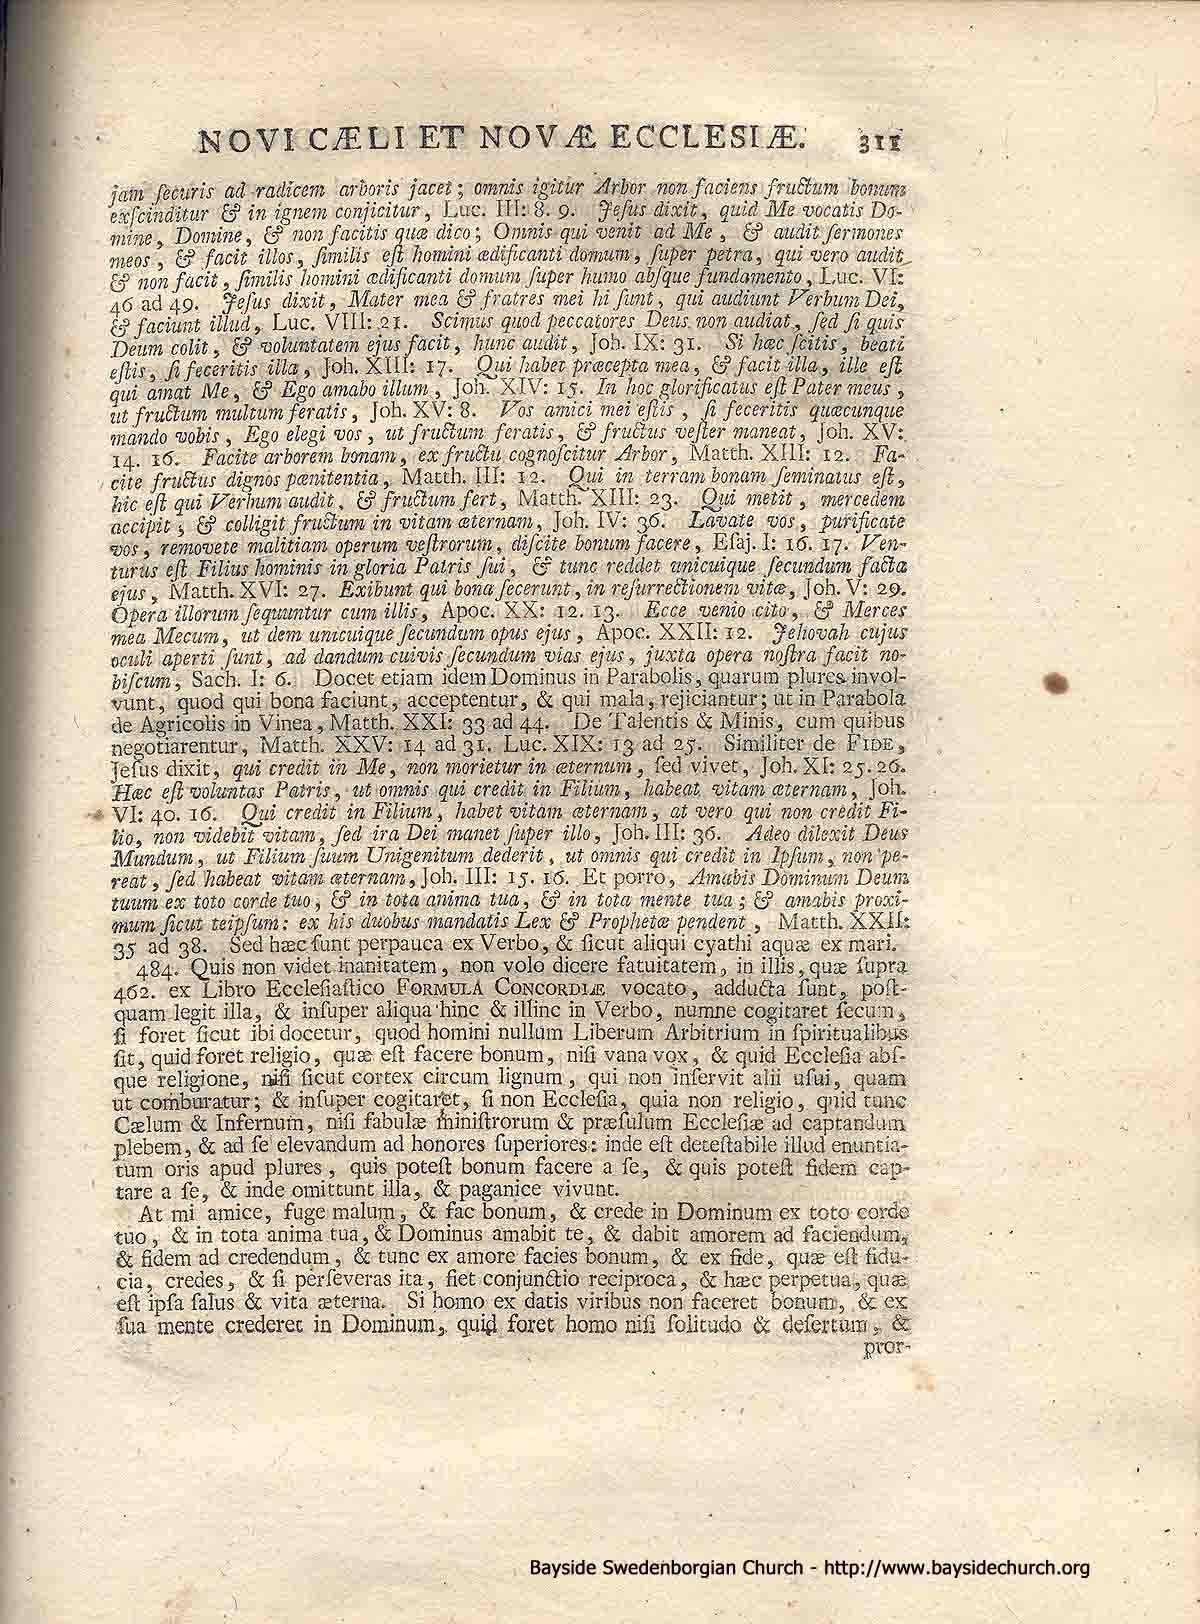 NOVI CÆLI ET NOVÆ ECCLESIÆ. 311
jam ſecuris ad radicem arboris jacet; omnis igitur Arbor non faciens fructum bonum
exſcinditur & in ignem conjicitur, Luc. III: 8. 9. Jeſus dixit, quid Me vocatis Do-
mine, Domine, & non facitis quæ dico; Omnis qui venit ad Me, & audit ſermones
meos, & facit illos, ſimilis eſt homini ædificanti domum, ſuper petra, qui vero audit
& non facit, ſimilis homini ædificanti domum ſuper humo abſque fundamento, Luc. VI:
46 ad 49. Jeſus dixit, Mater mea & fratres mei hi ſunt, qui audiunt Verbum Dei,
& faciunt illud, Luc. VIII: 21. Scimus quod peccatores Deus non audiat, ſed ſi quis
Deum colit, & voluntatem ejus facit, hunc audit, Joh. IX: 31. Si hæc ſcitis, beati
eſtis, ſi feceritis illa, Joh. XIII: 17. Qui habet præcepta mea, & facit illa, ille eſt
qui amat Me, & Ego amabo illum, Joh. XIV: 15. In hoc glorificatus eſt Pater meus,
ut fructum multum feratis, Joh. XV: 8. Vos amici mei eſtis, ſi feceritis quæcunque
mando vobis, Ego elegi vos, ut fructum feratis, & fructus veſter maneat, Joh. XV:
14. 16. Facite arborem bonam, ex fructu cognoſcitur Arbor, Matth. XIII: 12. Fa-
cite fructus dignos pænitentia, Matth. III: 12. Qui in terram bonam ſeminatus eſt,
hic eſt qui Verbum audit, & fructum fert, Matth. XIII: 23. Qui metit, mercedem
accipit, & colligit fructum in vitam æternam, Joh. IV: 36. Lavate vos, purificate
vos, removete malitiam operum veſtrorum, diſcite bonum facere, Eſaj. I: 16. 17. Ven-
turus eſt Filius hominis in gloria Patris ſui, & tunc reddet unicuique ſecundum facta
ejus, Matth. XVI: 27. Exibunt qui bona fecerunt, in reſurrectionem vitæ, Joh. V: 29.
Opera illorum ſequuntur cum illis, Apoc. XX: 12. 13. Ecce venio cito, & Merces
mea Mecum, ut dem unicuique ſecundum opus ejus, Apoc. XXII: 12. Jehovah cujus
oculi aperti ſunt, ad dandum cuivis ſecundum vias ejus, juxta opera noſtra facit no-
biſcum, Sach. I: 6. Docet etiam idem Dominus in Parabolis, quarum plures invol-
vunt, quod qui bona faciunt, acceptentur, & qui mala, rejiciantur; ut in Parabola
de Agricolis in Vinea, Matth. XXI: 33 ad 44. De Talentis & Minis, cum quibus
negotiarentur, Matth. XXV: 14 ad 31. Luc. XIX: 13 ad 25. Similiter de FIDE,
Jeſus dixit, qui credit in Me, non morietur in æternum, ſed vivet, Joh. XI: 25. 26.
Hæc eſt voluntas Patris, ut omnis qui credit in Filium, habeat vitam æternam, Joh.
VI: 40. 16. Qui credit in Filium, habet vitam æternam, at vero qui non credit Fi-
lio, non videbit vitam, ſed ira Dei manet ſuper illo, Joh. III: 36. Adeo dilexit Deus
Mundum, ut Filium ſuum Unigenitum dederit, ut omnis qui credit in Ipſum, non pe-
reat, ſed habeat vitam æternam, Joh. III: 15. 16. Et porro, Amabis Dominum Deum
tuum ex toto corde tuo, & in tota anima tua, & in tota mente tua; & amabis proxi-
mum ſicut teipſum: ex his duobus mandatis Lex & Prophetæ pendent, Matth. XXII:
35 ad 38. Sed hæc ſunt perpauca ex Verbo, & ſicut aliqui cyathi aquæ ex mari.
484. Quis non videt inanitatem, non volo dicere fatuitatem, in illis, quæ ſupra
462. ex Libro Eccleſiaſtico FORMULA CONCORDIÆ vocato, adducta ſunt, poſt-
quam legit illa, & inſuper aliqua hinc & illinc in Verbo, numne cogitaret ſecum,
ſi foret ſicut ibi docetur, quod homini nullum Liberum Arbitrium in ſpiritualibus
ſit, quid foret religio, quæ eſt facere bonum, niſi vana vox, & quid Eccleſia abſ-
que religione, niſi ſicut cortex circum lignum, qui non inſervit alii uſui, quam
ut comburatur; & inſuper cogitaret, ſi non Eccleſia, quia non religio, quid tunc
Cælum & Infernum, niſi fabulæ miniſtrorum & præſulum Eccleſiæ ad captandum
plebem, & ad ſe elevandum ad honores ſuperiores: inde eſt deteſtabile illud enuntia-
tum oris apud plures, quis poteſt bonum facere a ſe, & quis poteſt fidem cap-
tare a ſe, & inde omittunt illa, & paganice vivunt.
At mi amice, fuge malum, & fac bonum, & crede in Dominum ex toto corde
tuo, & in tota anima tua, & Dominus amabit te, & dabit amorem ad faciendum,
& fidem ad credendum, & tunc ex amore facies bonum, & ex fide, quæ eſt fidu-
cia, credes, & ſi perſeveras ita, fiet conjunctio reciproca, & hæc perpetua, quæ
eſt ipſa ſalus & vita æterna. Si homo ex datis viribus non faceret bonum, & ex
ſua mente crederet in Dominum, quid foret homo niſi ſolitudo & deſertum, &
pror-
Bayside Swedenborgian Church - http://www.baysidechurch.org